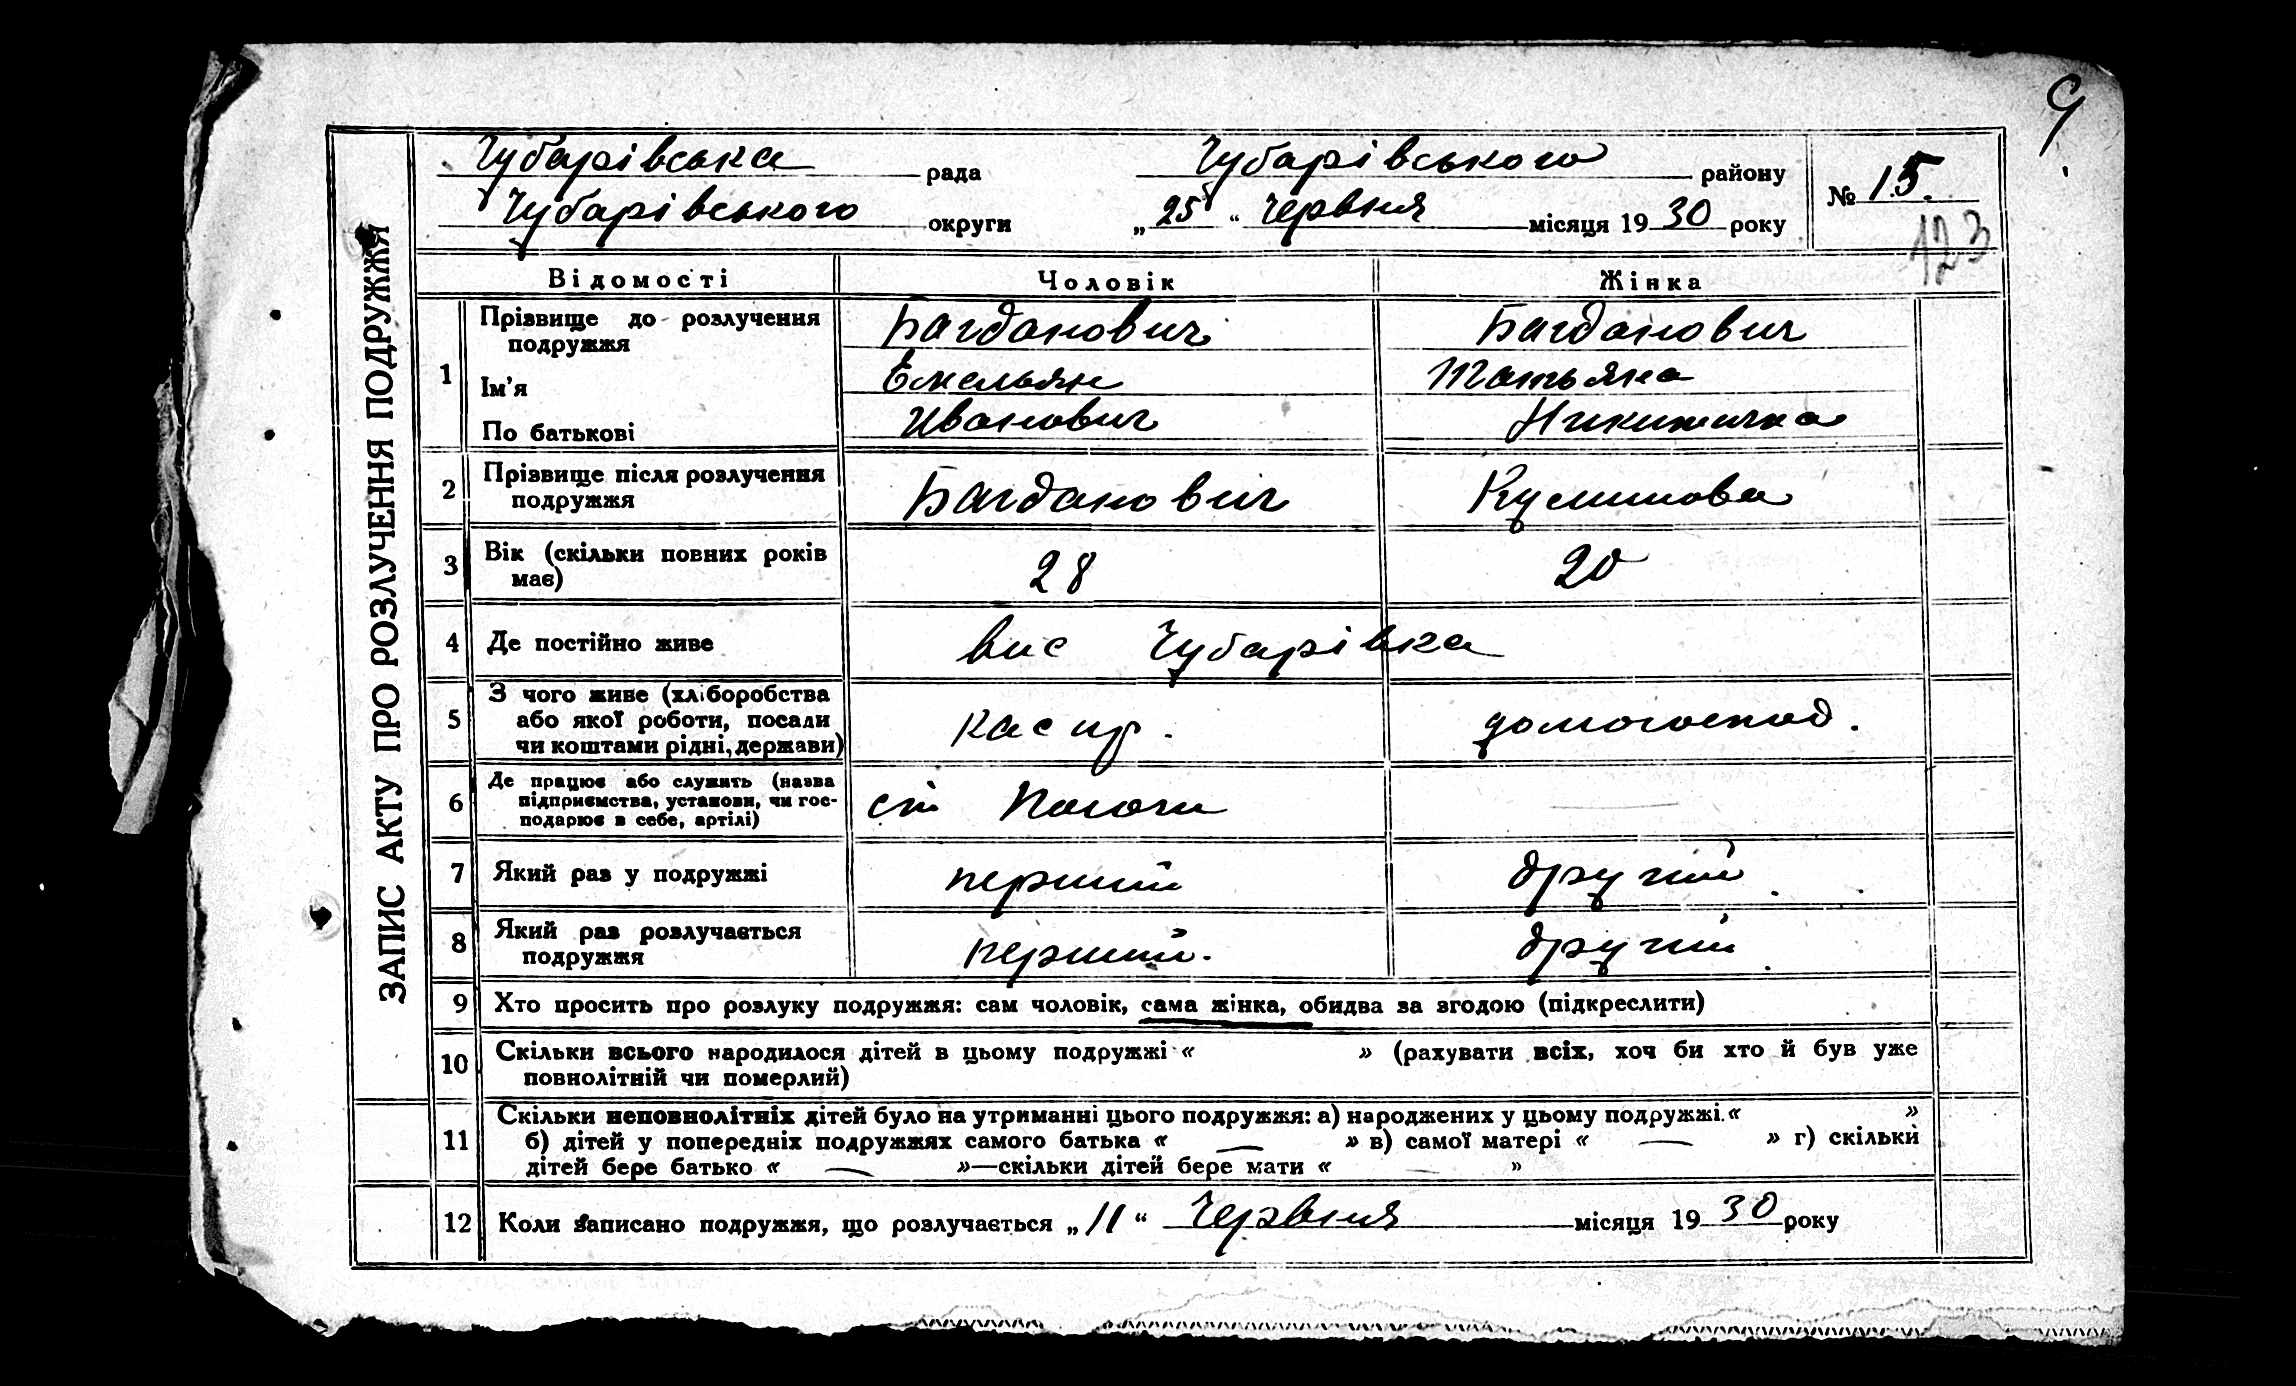 9
Чубарівська рада Чубарівського району № 15.
Чубарівського округи „25“ Червня місяця 1930 року
123
ЗАПИС АКТУ ПРО РОЗЛУЧЕННЯ ПОДРУЖЖЯ
Відомості Чоловік Жінка
1 Прізвище до розлучення подружжя Багданович Багданович
Ім'я Емельян Татьяна
По батькові Иванович Никитична
2 Прізвище після розлучення подружжя Багданович
3 Вік (скільки повних років має) 28 20
4 Де постійно живе вис Чубарівка
5 З чого живе (хліборобства або якої роботи, посади чи коштами рідні, держави) касир. домогоспод.
6 Де працює або служить (назва підприємства, установи, чи господарює в себе, артілі) ст Пологи —
7 Який раз у подружжі перший другий.
8 Який раз розлучається подружжя перший. другий.
9 Хто просить про розлуку подружжя: сам чоловік, сама жінка, обидва за згодою (підкреслити)
10 Скільки всього народилося дітей в цьому подружжі « » (рахувати всіх, хоч би хто й був уже
повнолітній чи померлий)
11 Скільки неповнолітніх дітей було на утриманні цього подружжя: а) народжених у цьому подружжі « »
б) дітей у попередніх подружжях самого батька « — » в) самої матері « — » г) скільки
дітей бере батько « — »—скільки дітей бере мати « — »
12 Коли записано подружжя, що розлучається „11“ Червня місяця 1930 року